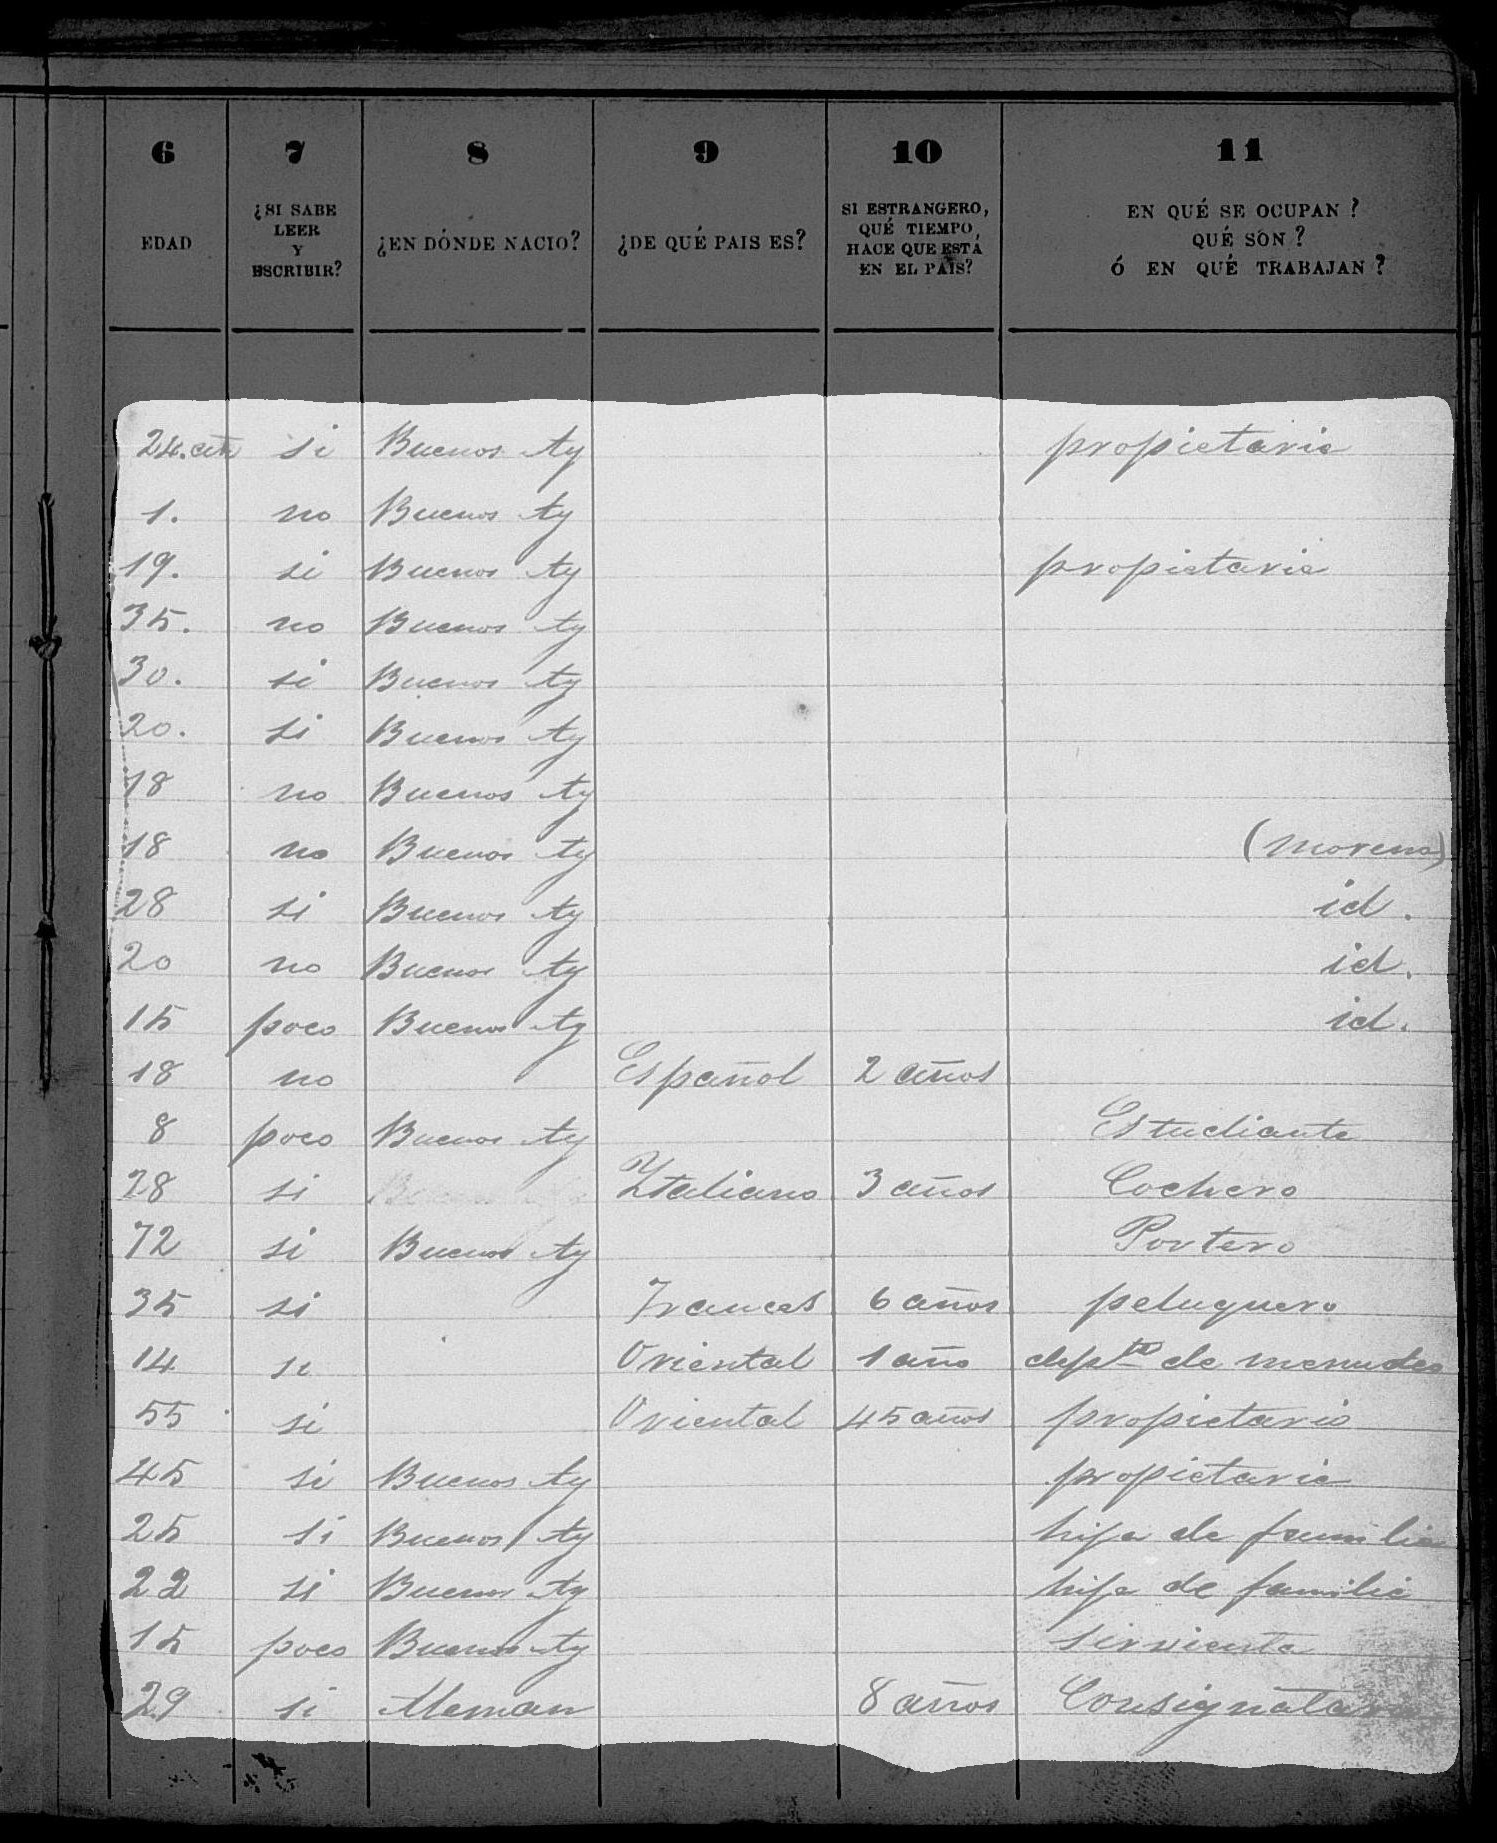 6 7 8 9 10 11
EDAD ¿SI SABE LEER Y ESCRIBIR? ¿EN DÓNDE NACIO? ¿DE QUÉ PAIS ES? SI ESTRANGERO, QUÉ TIEMPO, HACE QUE ESTÁ EN EL PAÍS? EN QUÉ SE OCUPAN? QUÉ SON? Ó EN QUÉ TRABAJAN?
24. si Buenos Ay propietaria
1. no Buenos Ay
19. si Buenos Ay propietaria
35. no Buenos Ay
30. si Buenos Ay
20. si Buenos Ay
18 no Buenos Ay
18 no Buenos Ay (morena)
28 si Buenos Ay id.
20 no Buenos Ay id.
15 poco Buenos Ay id.
18 no Español 2 años
8 poco Buenos Ay Estudiante
28 si Ytaliano 3 años Cochero
72 si Buenos Ay Portero
35 si Frances 6 años peluquero
14 si Oriental 1 año depto de menudeo
55 si Oriental 45 años propietario
45 si Buenos Ay propietaria
25 si Buenos Ay hija de familia
22 si Buenos Ay hija de familia
15 poco Buenos Ay sirvienta
29 si Aleman 8 años Consignatario